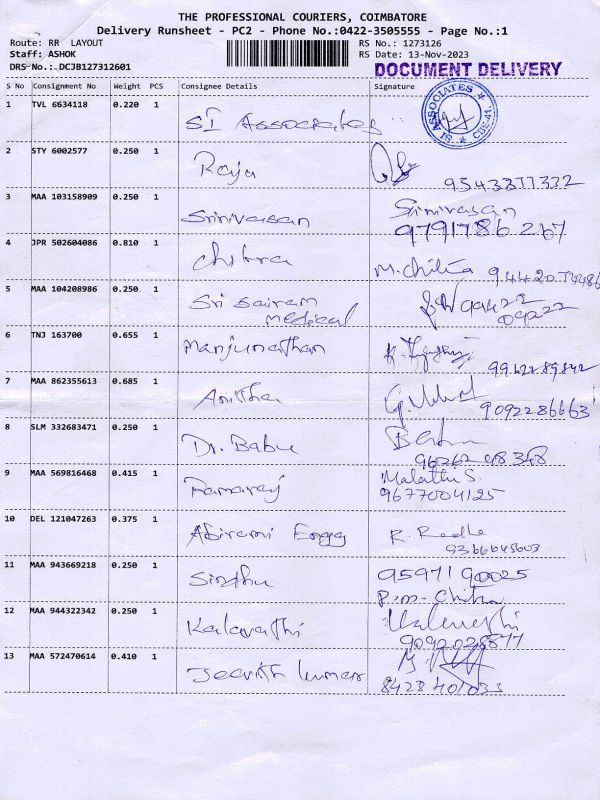 THE PROFESSIONAL COURIERS, COIMBATORE
Delivery Runsheet - PC2 - Phone No.:0422-3505555 - Page No.:1
Route: RR LAYOUT RS No.: 1273126
Staff: ASHOK RS Date: 13-Nov-2023
DRS No.: DCJB127312601 DOCUMENT DELIVERY
S No Consignment No Weight PCS Consignee Details Signature
1 TVL 6634118 0.220 1 SI Associates
SI ASSOCIATES CBE-41
2 STY 6002577 0.250 1 Raja
9543377332
3 MAA 103158909 0.250 1 Srinivasan Srinivasan
9791786267
4 JPR 502604086 0.810 1 Chitra M. Chitra
5 MAA 104208986 0.250 1 Sri Sairam
medical 99422
09222
6 TNJ 163700 0.655 1 Manjunathan
9962289842
7 MAA 862355613 0.685 1 Anitha
9092286663
8 SLM 332683471 0.250 1 Dr. Babu
96262 98348
9 MAA 569816468 0.415 1 Ramaraj Malathi S.
9677004125
10 DEL 121047263 0.375 1 Abirami Engg R. Radha
9366645603
11 MAA 943669218 0.250 1 Sindhu 9597190025
P.m. Chitra
12 MAA 944322342 0.250 1 Kalavathi
9090028877
13 MAA 572470614 0.410 1 Jeevith kumar
8428401033